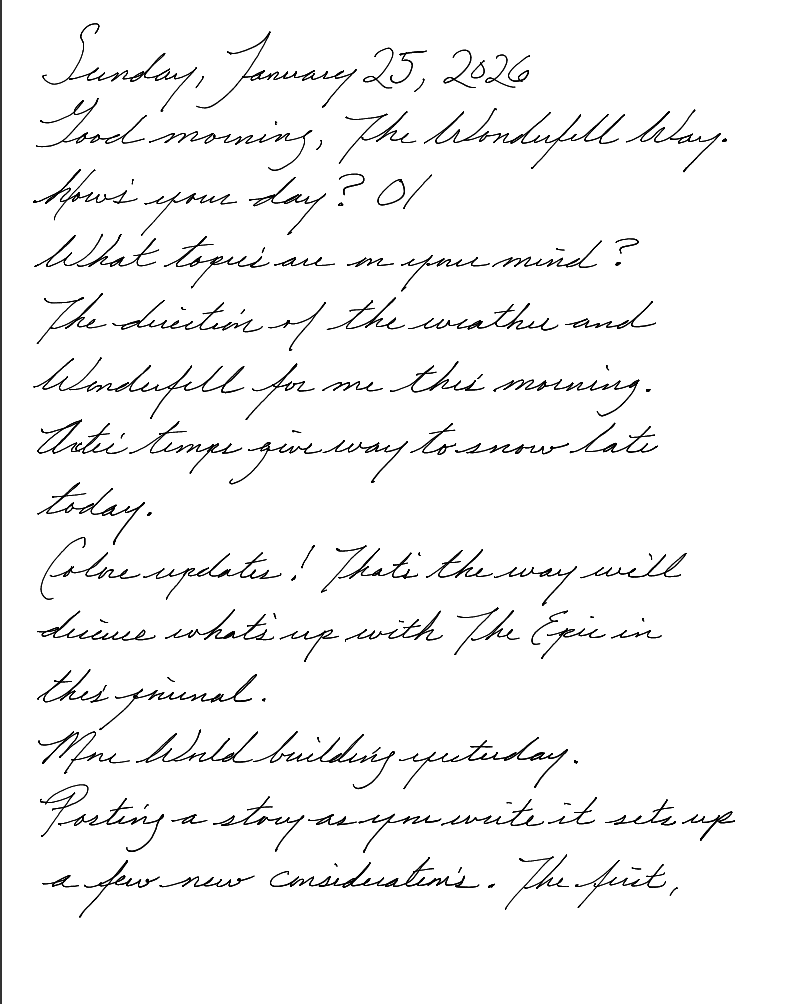 Sunday, January 25, 2026
Good morning, The Wonderfell Way.
How's your day? 01
What topics are on your mind?
The direction of the weather and
Wonderfell for me this morning.
Artic temps give way to snow late
today.
Colore updates! That's the way we'll
discuss what's up with The Epic in
this journal.
More World building yesterday.
Posting a story as you write it sets up
a few new considerations. The first,